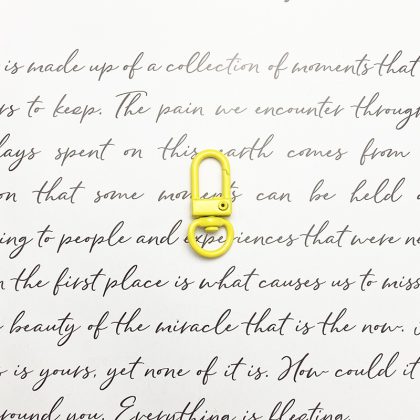 is made up of a collection of moments that
rs to keep. The pain we encounter through
days spent on this earth comes from
on that some moments can be held
ing to people and experiences that were ne
n the first place is what causes us to miss
beauty of the miracle that is the now.
s is yours, yet none of it is. How could it
round you. Everything is fleeting.